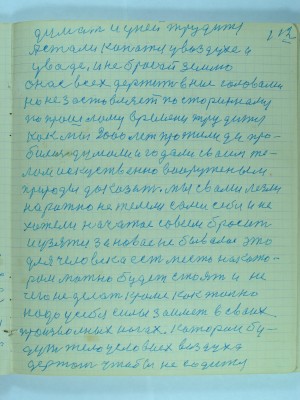 112
думат и у ней трудится
встали купатся у воздухе и
у воде, и не бросай землю
она всех держит в низ головами
но не заставляет по старинному
по прошлому времени трудится
как мы 2000 лет прожили да про-
били думали и гадали своим те-
лом искуственно вооруженым
природы доказать. мы с вами лезли
на ратно не темем сами себя и не
хотели начатае совсем бросит
и узятся за новае не бывалое это
для человека ест место на кото-
ром можно будет стоят и не
чего не делат кроме как токо
надо у себя силы займет в своих
произвольных ногах. которые бу-
дут тело условиях воздуха
держат чтобы не садится